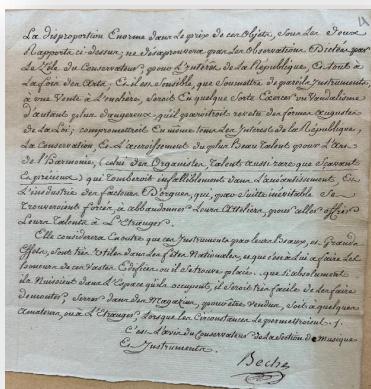 La disproportion Enorme dans le prix de ces Objets, Sous les deux
Rapports ci-dessus; ne désaprouvera pas les Observations Dictées par
Le Zèle du Conservateur, pour L'intérêt de la République, Et tout à
La fois des Arts; Et il est Sensible, que Soumettre de pareils Instruments,
à une Vente à L'enchère, Seroit En quelque Sorte Exercer un Vandalisme
D'autant plus dangereux, qu'il paroitroit revetu des formes augustes
de La Loi; compromettroit En même tems Les Interets de La République,
La Conservation, Et L'accroissement du plus Beau Talent pour L'art
de L'harmonie, Celui des Organistes, Talent aussi rare que Scavant
Et précieux, qui Tomberoit infailliblement dans L'anéantissement. Et
L'industrie des facteurs D'orgues, qui, par Suitte inévitable Se
Trouveroient forcés, à abbandonner Leurs Atteliers, pour aller offrir
Leurs Talents à L'Etranger.
Elle considerera En outre que ces Instruments par leurs Beaux, et Grands
Effets, Sont très Utiles dans Les fêtes Nationales, et que c'est à lui à faire Les
honneurs de ces Vastes Edifices où il Se trouve placé. que Si absolument
ils Nuisoient dans L'Espace qu'ils occupent, il Seroit très facile de les faire
demonter, Serrer dans des Magasins, pour être Vendus, Soit à quelques
Amateurs, ou à L'Etranger, Lorsque les Circonstances Le permettroient.
C'est L'avis du Conservateur de La Section de Musique
Et Instruments.